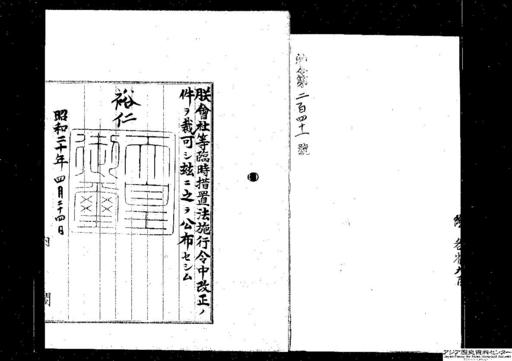 勅令第二百四十一號
朕會社等臨時措置法施行令中改正ノ
件ヲ裁可シ茲ニ之ヲ公布セシム
裕仁
天皇御璽
昭和二十年四月二十四日
内閣
アジア歴史資料センター